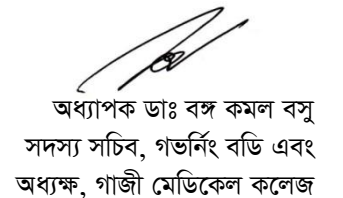 অধ্যাপক ডাঃ বঙ্গ কমল বসু
সদস্য সচিব, গভর্নিং বডি এবং
অধ্যক্ষ, গাজী মেডিকেল কলেজ